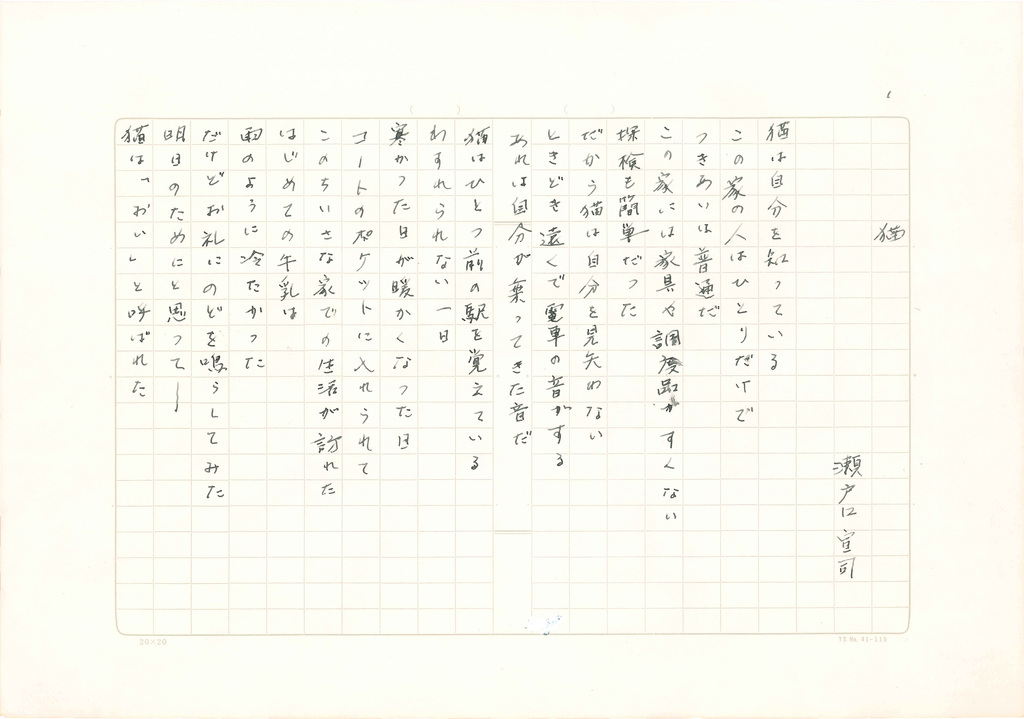 猫
瀬戸口宣司
猫は自分を知っている
この家の人はひとりだけで
つきあいは普通だ
この家には家具や調度品がすくない
探検も簡単だった
だから猫は自分を見失わない
ときどき遠くで電車の音がする
あれは自分が乗ってきた音だ
猫はひとつ前の駅を覚えている
わすれられない一日
寒かった日が暖かくなった日
コートのポケットに入れられて
このちいさな家での生活が訪れた
はじめての牛乳は
雨のように冷たかった
だけどお礼にのどを鳴らしてみた
明日のためにと思って――
猫は「おい」と呼ばれた
20×20